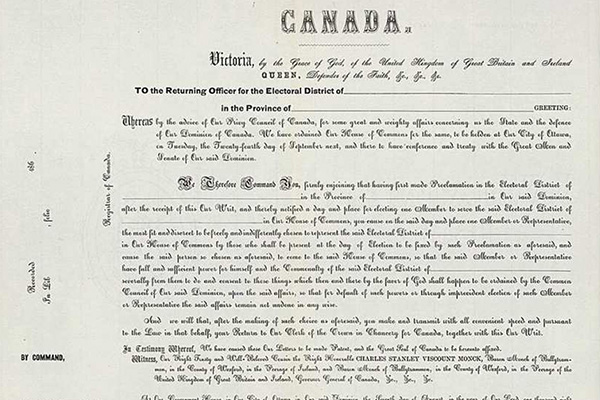 CANADA.
Victoria, by the Grace of God, of the United Kingdom of Great Britain and Ireland
QUEEN, Defender of the Faith, &c., &c., &c.
TO the Returning Officer for the Electoral District of
in the Province of GREETING:
Whereas by the advice of Our Privy Council of Canada, for some great and weighty affairs concerning us the State and the defence
of Our Dominion of Canada. We have ordained Our House of Commons for the same, to be holden at Our City of Ottawa,
on Tuesday, the Twenty-fourth day of September next, and there to have conference and treaty with the Great Men and
Senate of Our said Dominion.
We Therefore Command You, firmly enjoining that having first made Proclamation in the Electoral District of
in the Province of in Our said Dominion,
after the receipt of this Our Writ, and thereby notified a day and place for electing one Member to serve the said Electoral District of
in Our House of Commons, you cause on the said day and place one Member or Representative,
the most fit and discreet to be freely and indifferently chosen to represent the said Electoral District of
in Our House of Commons by those who shall be present at the day of Election to be fixed by such Proclamation as aforesaid, and
cause the said person so chosen as aforesaid, to come to the said House of Commons, so that the said Member or Representative
have full and sufficient power for himself and the Commonalty of the said Electoral District of
severally from them to do and consent to those things which then and there by the favor of God shall happen to be ordained by the Common
Council of Our said Dominion, upon the said affairs, so that for default of such powers or through improvident election of such Member
or Representative the said affairs remain not undone in any wise.
And we will that, after the making of such choice as aforesaid, you make and transmit with all convenient speed and pursuant
to the Law in that behalf, your Return to Our Clerk of the Crown in Chancery for Canada, together with this Our Writ.
In Testimony Whereof, We have caused these Our Letters to be made Patent, and the Great Seal of Canada to be hereunto affixed.
Witness, Our Right Trusty and Well-Beloved Cousin the Right Honorable CHARLES STANLEY VISCOUNT MONCK, Baron Monck of Ballytram-
mon, in the County of Wexford, in the Peerage of Ireland, and Baron Monck of Ballytrammon, in the County of Wexford, in the Peerage of the
United Kingdom of Great Britain and Ireland, Governor General of Canada, &c., &c., &c.
Recorded
In Lib. folio
Registrar of Canada.
BY COMMAND,